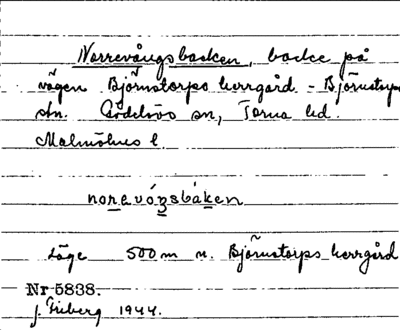 Norrevångsbacken, backe på
vägen Björnstorps herrgård - Björnstorps
stn. Gödelövs sn, Torna hd.
Malmöhus l.
norevózsbáken
Läge 500 m n. Björnstorps herrgård
Nr 5838.
J. Friberg 1944.